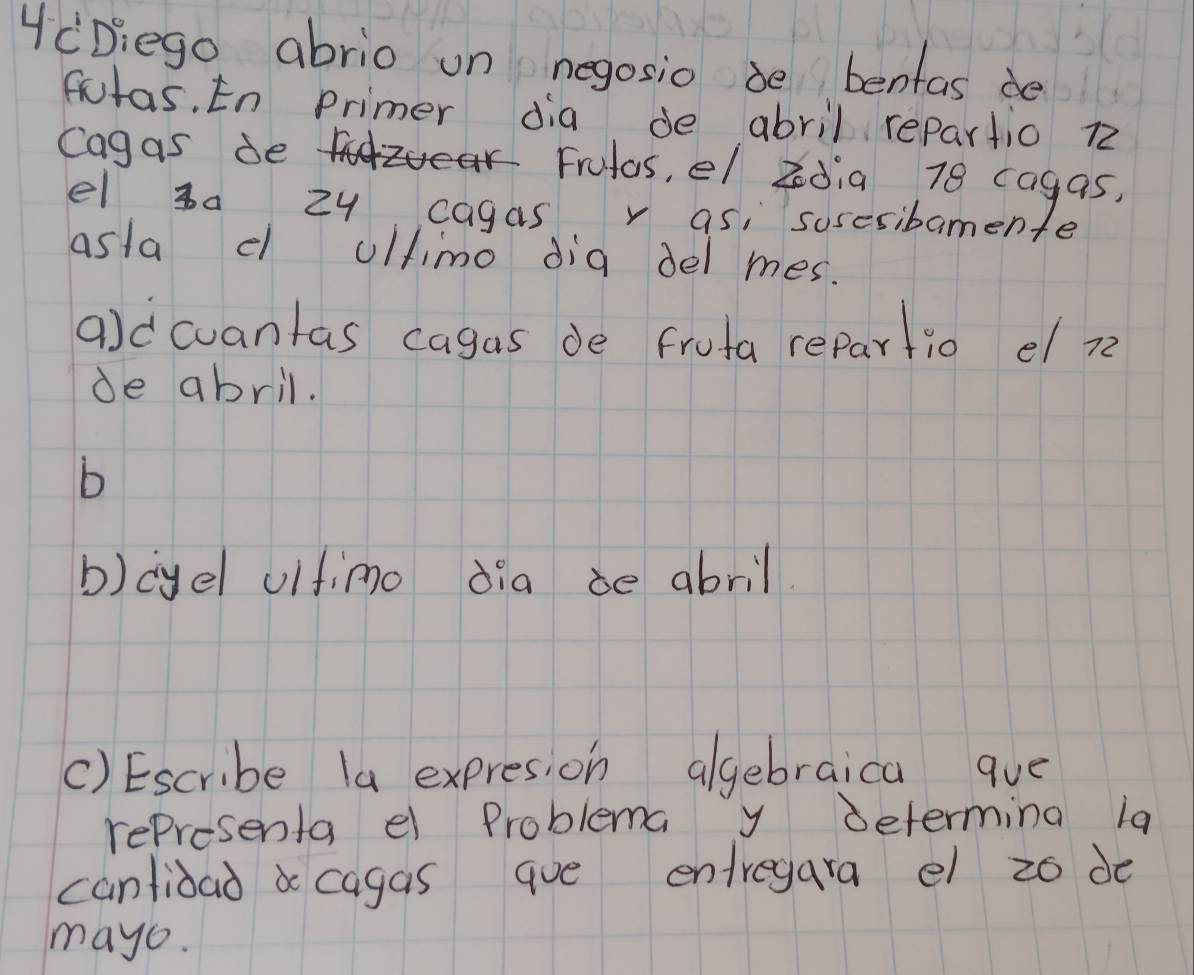 4¿Diego abrio un negosio de bentas de
frutas. En primer dia de abril repartio 12
cagas de Frutas, el 2 dia 18 cagas,
el 3a 24 cagas y asi suscesibamente
asta el ultimo dia del mes.
a)¿cuantas cagas de fruta repartio el 12
de abril.
b
b)¿yel ultimo dia de abril.
c) Escribe la expresión algebraica que
representa el Problema y determina la
cantidad de cagas que entregara el 20 de
mayo.